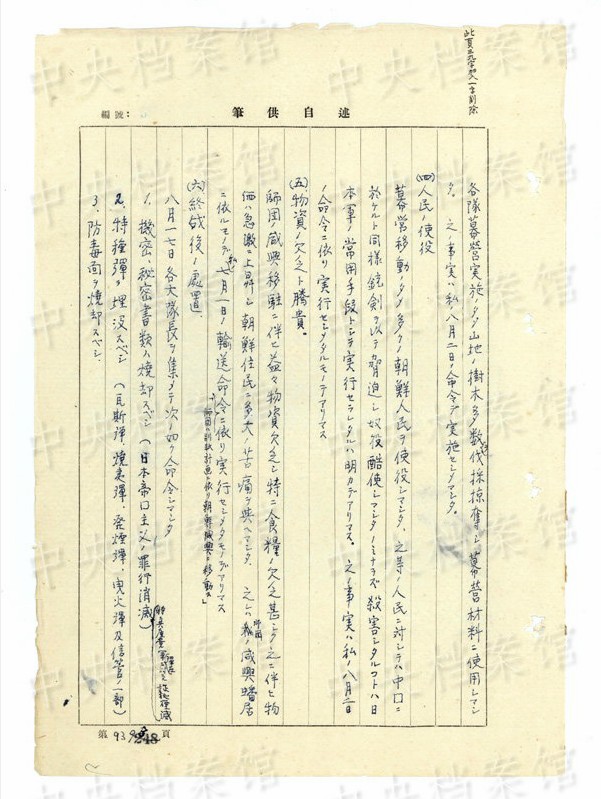 述自供筆
編號:
各隊幕営実施ノタメ山地ノ樹木多数伐採掠奪シ幕営材料ニ使用シマシ
タ。之ノ事実ハ私ノ八月二日ノ命令デ実施セシメマシタ。
(四)人民ノ使役
幕営移動ノタメ多クノ朝鮮人民ヲ使役シマシタ。之等ノ人民ニ対シテハ中国ニ
於ケルト同様銃剣ヲ以テ脅迫シ奴役酷使シマシタノミナラズ殺害シタルコトハ日
本軍ノ常用手段トシテ実行セラレタルハ明カデアリマス。之ノ事実ハ私ノ八月二日
ノ命令ニ依リ実行セシメタルモノデアリマス
(五)物資ノ欠乏ト騰貴。
師団ノ咸興移駐ニ伴ヒ益々物資欠乏シ特ニ食糧ノ欠乏甚シク之ニ伴ヒ物
価ハ急激ニ上昇シ朝鮮住民ニ多大ノ苦痛ヲ與ヘマシタ。之レハ師団ノ咸興蟠居
ニ依ルモノデ私ノ七月一日ノ輸送命令ニ依リ実行セシメタモノデアリマス
「師団ハ 計画ニ依リ朝鮮咸興ニ移動ス」
(六)終戦後ノ處置。
八月一七日各大隊長ヲ集メテ次ノ如ク命令シマシタ
1. 機密、秘密書類ハ焼却スベシ(日本帝国主義ノ罪行消滅)
2. 特種弾ヲ埋没スベシ (瓦斯弾、焼夷弾、発煙弾、曳火弾及信管ノ一部)
3. 防毒面ヲ焼却スベシ.
第 93 頁
中央档案馆